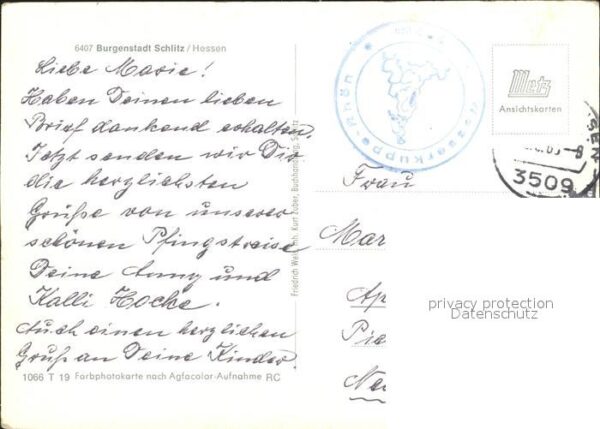 6407 Burgenstadt Schlitz / Hessen
Liebe Marie!
Haben Deinen lieben
Brief dankend erhalten.
Jetzt senden wir Dir
die herzlichsten
Grüße von unserer
schönen Pfingstreise
Deine Anny und
Kalli Hocke.
Auch einen herzlichen
Gruß an Deine Kinder.
1066 T 19 Farbphotokarte nach Agfacolor-Aufnahme RC
Friedrich Inh. Kurt Zuber, Buchhandlung, Schlitz
Wasserkuppe-Rhön
Metz
Ansichtskarten
SEN
3509
Frau
Mar
Ap
Pie
Ne
privacy protection
Datenschutz